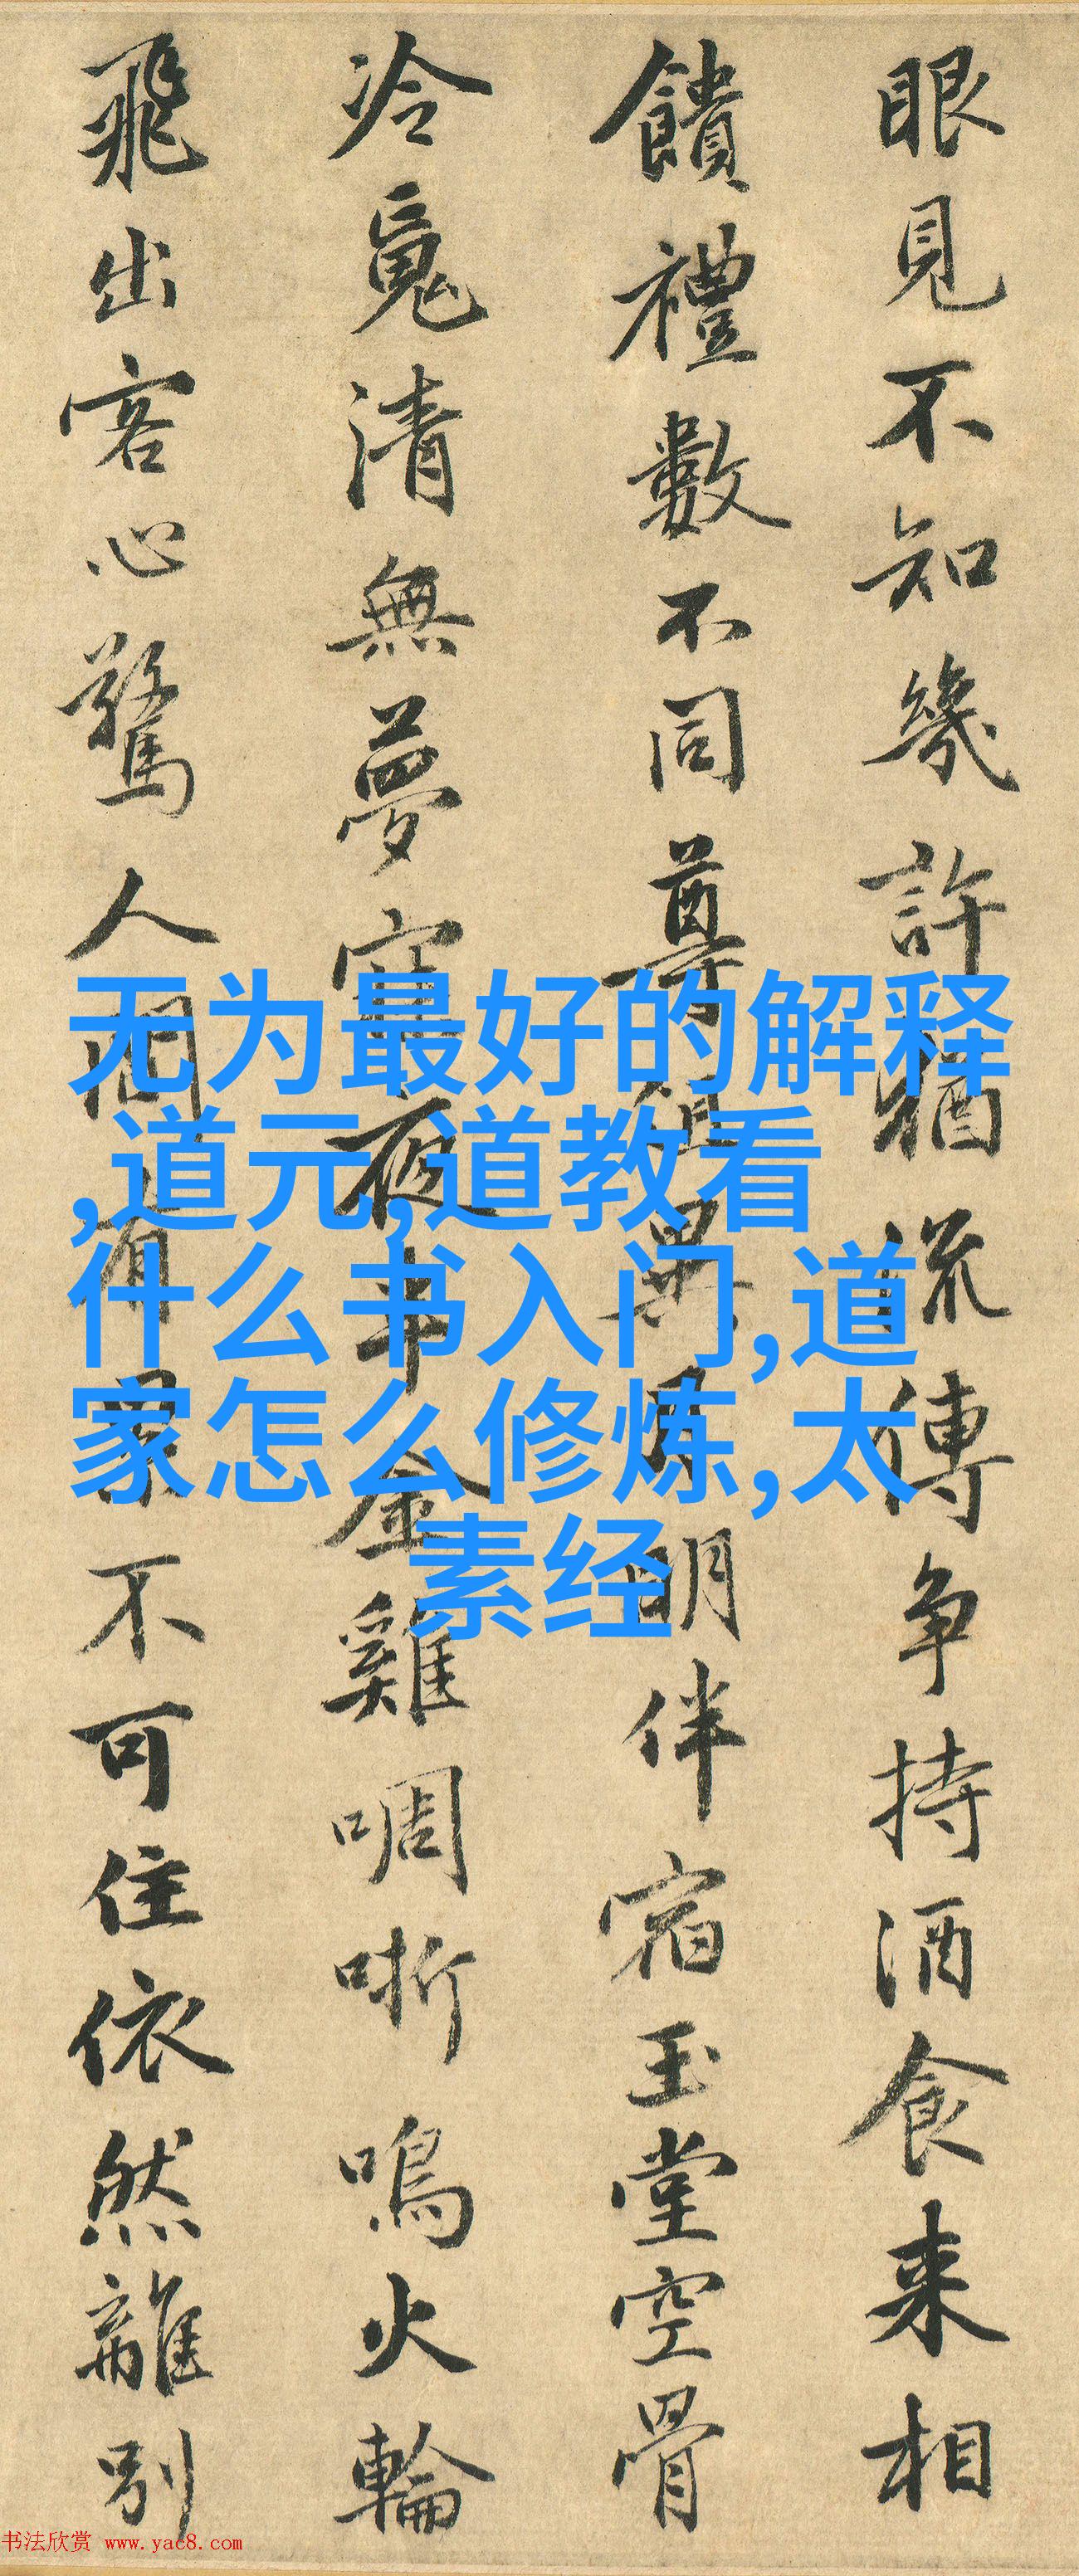 眼見不知幾許猶流傳争持酒食来相
饋禮數不同尊俎異月明伴宿玉堂空骨
冷魂清無夢寐夜半金雞啁哳鳴火輪
飛出客心驚人間有累不可住依然離別
无为最好的解释
,道元,道教看
什么书入门,道
家怎么修炼,太
素经
书法欣赏 www.yac8.com